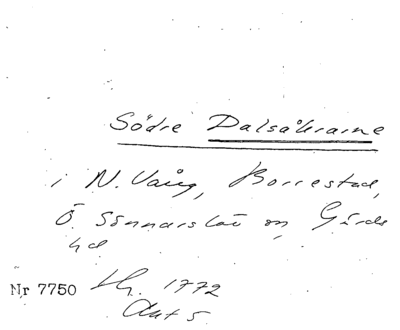 Södre Dalsåkrarne
i N. Vång, Borrestad,
Ö. Sönnarslöv sn, Gärds
hd
Nr 7750 Lh. 1772
Akt 5